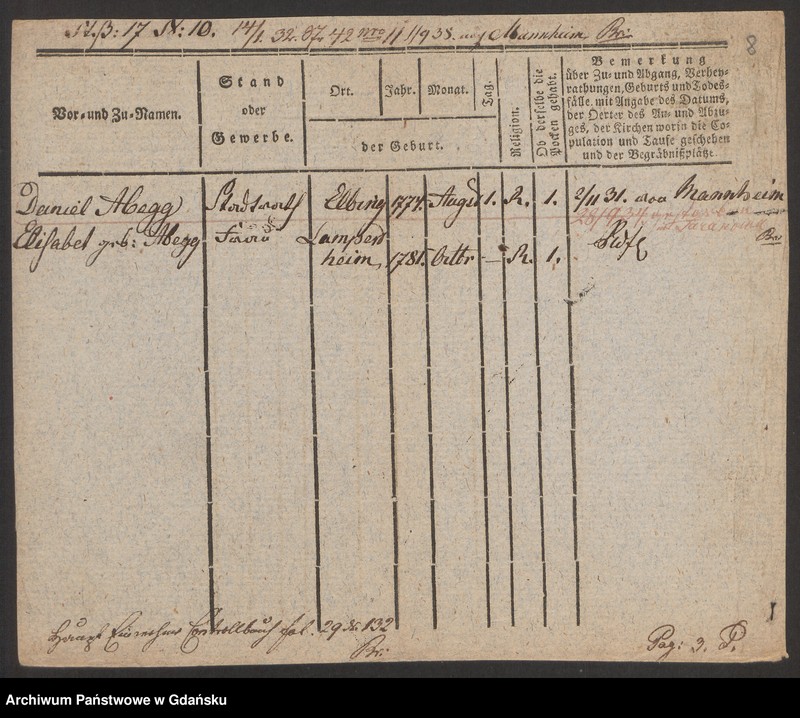 St. B: 17 N: 10. 14/1. 32. 37. 42 nro 11 11/9 38. Mannheim Br:
8
Vor- und Zu-Namen.
Stand
oder
Gewerbe.
Ort.
Jahr.
Monat.
Tag.
der Geburt.
Religion.
Ob derselbe die
Pocken gehabt.
Bemerkung
über Zu- und Abgang, Verhey-
rathungen, Geburts und Todes-
fälle, mit Angabe des Datums,
der Oerter des An- und Abzu-
ges, der Kirchen worin die Co-
pulation und Taufe geschehen
und der Begräbnißplätze
Daniel Abegg Stadtrath Elbing 1774. August 1. R. 1. 2/11 31. von Mannheim
26/9 34 gestorben
Elisabet geb: Abegg Frau Lampert
heim, 1781. Octbr — R. 1. Br:
Haupt Einwohner Controllbuch fol. 29 N. 132
Br:
Pag: 3. P.
Archiwum Państwowe w Gdańsku